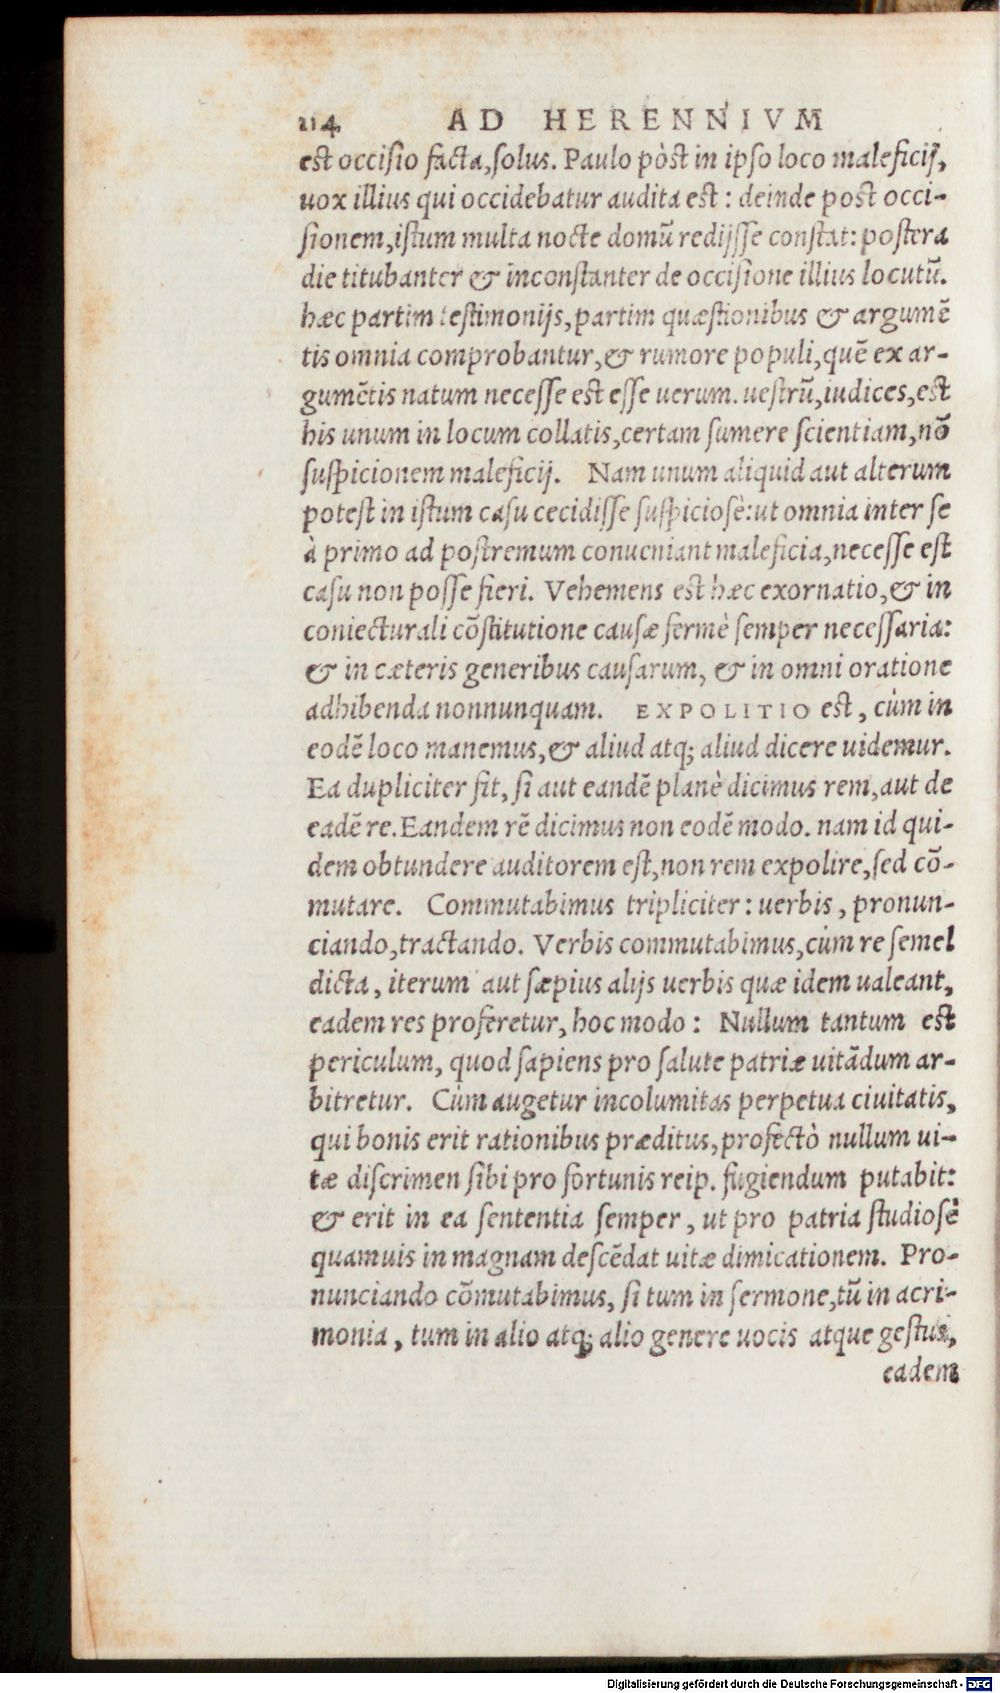 114 AD HERENNIVM
est occisio facta, solus. Paulo pòst in ipso loco maleficij,
uox illius qui occidebatur audita est: deinde post occi-
sionem, istum multa nocte domũ redijsse constat: postera
die titubanter & inconstanter de occisione illius locutũ.
hæc partim testimonijs, partim quæstionibus & argumẽ
tis omnia comprobantur, & rumore populi, quẽ ex ar-
gumẽtis natum necesse est esse uerum. uestrũ, iudices, est
his unum in locum collatis, certam sumere scientiam, nõ
suspicionem maleficij. Nam unum aliquid aut alterum
potest in istum casu cecidisse suspiciosè: ut omnia inter se
à primo ad postremum conueniant maleficia, necesse est
casu non posse fieri. Vehemens est hæc exornatio, & in
coniecturali cõstitutione causæ fermè semper necessaria:
& in cæteris generibus causarum, & in omni oratione
adhibenda nonnunquam. EXPOLITIO est, cùm in
eodẽ loco manemus, & aliud atq; aliud dicere uidemur.
Ea dupliciter fit, si aut eandẽ planè dicimus rem, aut de
eadẽ re. Eandem rẽ dicimus non eodẽ modo. nam id qui-
dem obtundere auditorem est, non rem expolire, sed cõ-
mutare. Commutabimus tripliciter: uerbis, pronun-
ciando, tractando. Verbis commutabimus, cùm re semel
dicta, iterum aut sæpius alijs uerbis quæ idem ualeant,
eadem res proferetur, hoc modo: Nullum tantum est
periculum, quod sapiens pro salute patriæ uitãdum ar-
bitretur. Cùm augetur incolumitas perpetua ciuitatis,
qui bonis erit rationibus præditus, profectò nullum ui-
tæ discrimen sibi pro fortunis reip. fugiendum putabit:
& erit in ea sententia semper, ut pro patria studiosè
quamuis in magnam descẽdat uitæ dimicationem. Pro-
nunciando cõmutabimus, si tum in sermone, tũ in acri-
monia, tum in alio atq; alio genere uocis atque gestus,
eadem
Digitalisierung gefördert durch die Deutsche Forschungsgemeinschaft - DFG